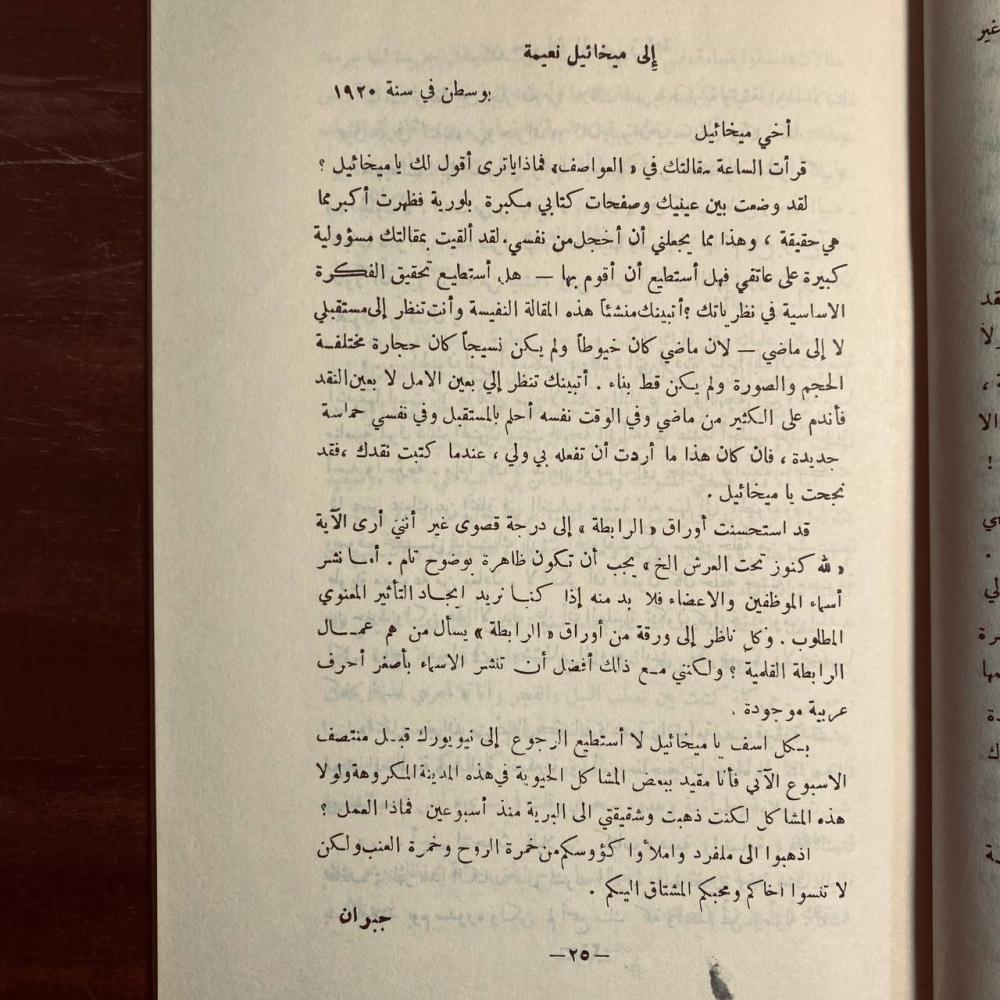 إلى ميخائيل نعيمة
بوسطن في سنة ١٩٢٠
أخي ميخائيل
قرأت الساعة مقالتك في « العواصف» فماذا ياترى أقول لك ياميخائيل ؟
لقد وضعت بين عينيك وصفحات كتابي مكبرة بلورية فظهرت أكبر مما
هي حقيقة ، وهذا مما يجعلني أن أخجل من نفسي. لقد ألقيت بمقالتك مسؤولية
كبيرة على عاتقي فهل أستطيع أن أقوم بها — هل أستطيع تحقيق الفكرة
الاساسية في نظرياتك ؟ أتبينك منشئاً هذه المقالة النفيسة وأنت تنظر إلى مستقبلي
لا إلى ماضي — لان ماضي كان خيوطاً ولم يكن نسيجاً كان حجارة مختلفة
الحجم والصورة ولم يكن قط بناء . أتبينك تنظر إلي بعين الامل لا بعين النقد
فأندم على الكثير من ماضي وفي الوقت نفسه أحلم بالمستقبل وفي نفسي حماسة
جديدة ، فان كان هذا ما أردت أن تفعله بي ولي ، عندما كتبت نقدك ،فقد
نجحت يا ميخائيل .
قد استحسنت أوراق « الرابطة » إلى درجة قصوى غير أنني أرى الآية
« لله كنوز تحت العرش الخ » يجب أن تكون ظاهرة بوضوح تام . أما نشر
أسماء الموظفين والاعضاء فلا بد منه إذا كنا نريد ايجاد التأثير المعنوي
المطلوب . وكل ناظر إلى ورقة من أوراق « الرابطة » يسأل من هم عمال
الرابطة القلمية ؟ ولكنني مع ذلك أفضل أن تنشر الاسماء بأصغر أحرف
عربية موجودة .
بكل اسف يا ميخائيل لا أستطيع الرجوع إلى نيويورك قبل منتصف
الاسبوع الآتي فأنا مقيد ببعض المشاكل الحيوية في هذه المدينة المكروهة ولولا
هذه المشاكل لكنت ذهبت وشقيقتي الى البرية منذ أسبوعين فماذا العمل ؟
اذهبوا الى ملفرد واملأوا كؤوسكم من خمرة الروح وخمرة العنب ولكن
لا تنسوا اخاكم ومحبكم المشتاق اليكم .
جبران
—٢٥—